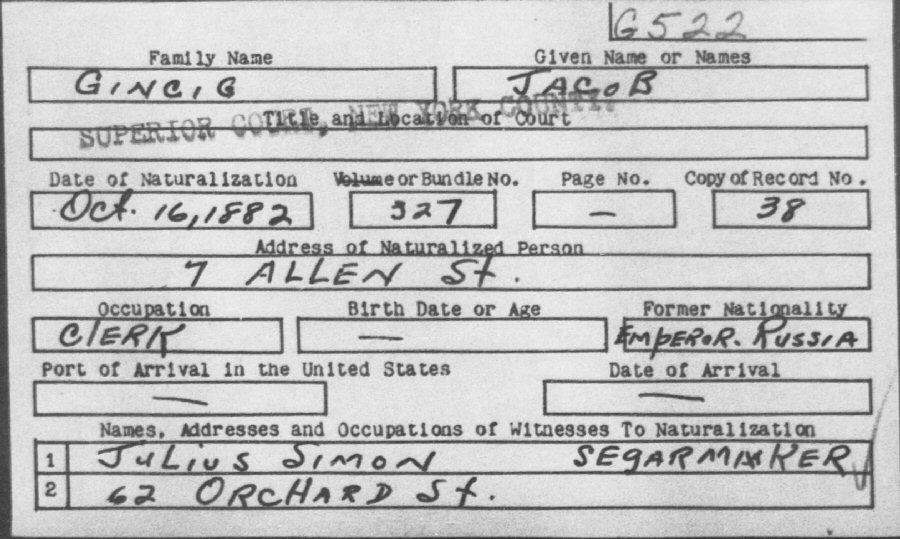 G522
Family Name Given Name or Names
GINCIG JACOB
SUPERIOR COURT, NEW YORK COUNTY.
Title and Location of Court
Date of Naturalization Volume or Bundle No. Page No. Copy of Record No.
Oct. 16, 1882 327 — 38
Address of Naturalized Person
7 ALLEN St.
Occupation Birth Date or Age Former Nationality
ClERK — EMPEROR. RUSSIA
Port of Arrival in the United States Date of Arrival
— —
Names, Addresses and Occupations of Witnesses To Naturalization
1 JULIUS SIMON SEGARMAKER
2 62 ORCHARD St.